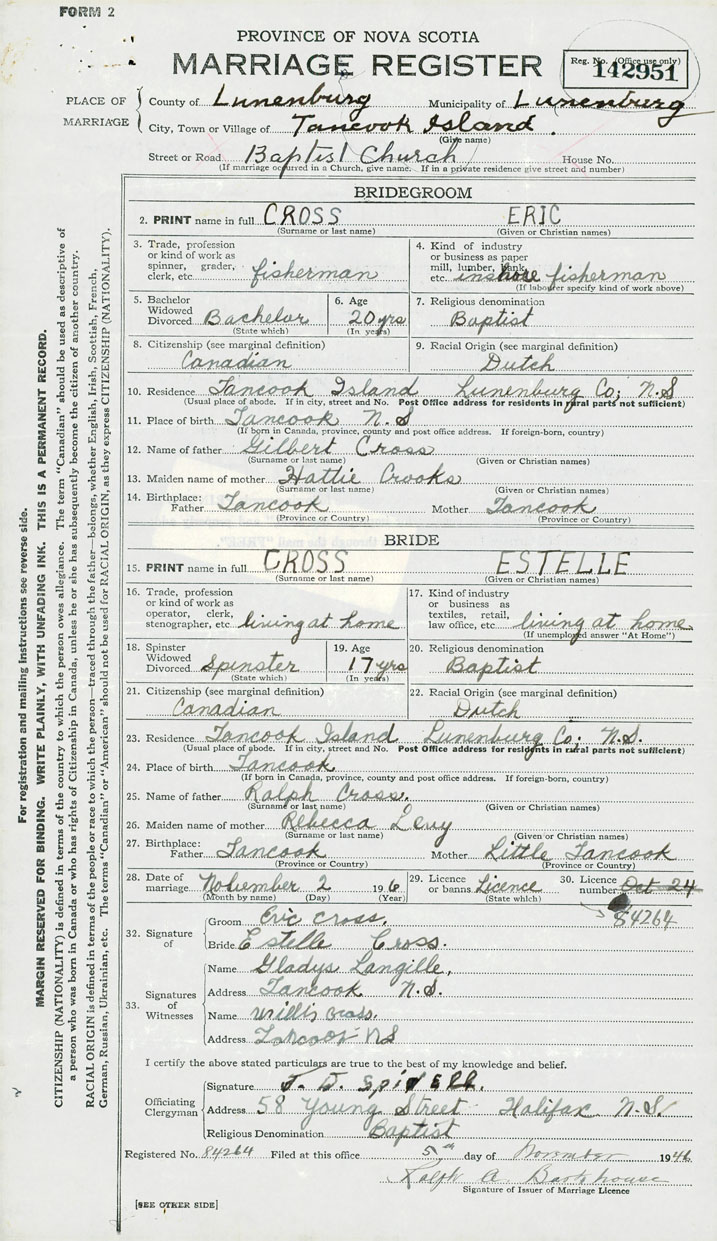 FORM 2
PROVINCE OF NOVA SCOTIA
MARRIAGE REGISTER
Reg. No. (Office use only)
142951
PLACE OF MARRIAGE
County of Lunenburg Municipality of Lunenburg
City, Town or Village of Tancook Island.
(Give name)
Street or Road Baptist Church House No.
(If marriage occurred in a Church, give name. If in a private residence give street and number)
BRIDEGROOM
2. PRINT name in full CROSS ERIC
(Surname or last name) (Given or Christian names)
3. Trade, profession or kind of work as spinner, grader, clerk, etc. fisherman
4. Kind of industry or business as paper mill, lumber, bank, etc. inshore fisherman
(If labourer specify kind of work above)
5. Bachelor Widowed Divorced Bachelor
(State which)
6. Age 20 yrs
(In years)
7. Religious denomination
Baptist
8. Citizenship (see marginal definition)
Canadian
9. Racial Origin (see marginal definition)
Dutch
10. Residence Tancook Island Lunenburg Co; N.S
(Usual place of abode. If in city, street and No. Post Office address for residents in rural parts not sufficient)
11. Place of birth Tancook N.S
(If born in Canada, province, county and post office address. If foreign-born, country)
12. Name of father Gilbert Cross
(Surname or last name) (Given or Christian names)
13. Maiden name of mother Hattie Crooks
(Surname or last name) (Given or Christian names)
14. Birthplace: Father Tancook Mother Tancook
(Province or Country) (Province or Country)
BRIDE
15. PRINT name in full CROSS ESTELLE
(Surname or last name) (Given or Christian names)
16. Trade, profession or kind of work as operator, clerk, stenographer, etc living at home
17. Kind of industry or business as textiles, retail, law office, etc living at home
(If unemployed answer "At Home")
18. Spinster Widowed Divorced Spinster
(State which)
19. Age 17 yrs
(In years)
20. Religious denomination
Baptist
21. Citizenship (see marginal definition)
Canadian
22. Racial Origin (see marginal definition)
Dutch
23. Residence Tancook Island Lunenburg Co; N.S.
(Usual place of abode. If in city, street and No. Post Office address for residents in rural parts not sufficient)
24. Place of birth Tancook
(If born in Canada, province, county and post office address. If foreign-born, country)
25. Name of father Ralph Cross.
(Surname or last name) (Given or Christian names)
26. Maiden name of mother Rebecca Levy
(Surname or last name) (Given or Christian names)
27. Birthplace: Father Tancook Mother Little Tancook
(Province or Country) (Province or Country)
28. Date of marriage November 2 196
(Month by name) (Day) (Year)
29. Licence or banns Licence
(State which)
30. Licence number Oct 24
84264
32. Signature of
Groom Eric Cross.
Bride Estelle Cross.
33. Signatures of Witnesses
Name Gladys Langille,
Address Tancook N.S.
Name Willis Cross.
Address Tancook NS
I certify the above stated particulars are true to the best of my knowledge and belief.
Officiating Clergyman
Signature Spidell.
Address 58 Young Street Halifax N.S.
Religious Denomination Baptist
Registered No. 84264 Filed at this office 5th day of November 1946
Ralph A Barkhouse
Signature of Issuer of Marriage Licence
[SEE OTHER SIDE]
For registration and mailing instructions see reverse side.
MARGIN RESERVED FOR BINDING. WRITE PLAINLY, WITH UNFADING INK. THIS IS A PERMANENT RECORD.
CITIZENSHIP (NATIONALITY) is defined in terms of the country to which the person owes allegiance. The term "Canadian" should be used as descriptive of
a person who was born in Canada or who has rights of Citizenship in Canada, unless he or she has subsequently become the citizen of another country.
RACIAL ORIGIN is defined in terms of the people or race to which the person—traced through the father—belongs, whether English, Irish, Scottish, French,
German, Russian, Ukrainian, etc. The terms "Canadian" or "American" should not be used for RACIAL ORIGIN, as they express CITIZENSHIP (NATIONALITY).